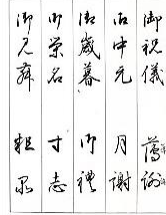 御祝儀 薄謝
御中元 月謝
御歳暮 御禮
寸志
御見舞 粗品